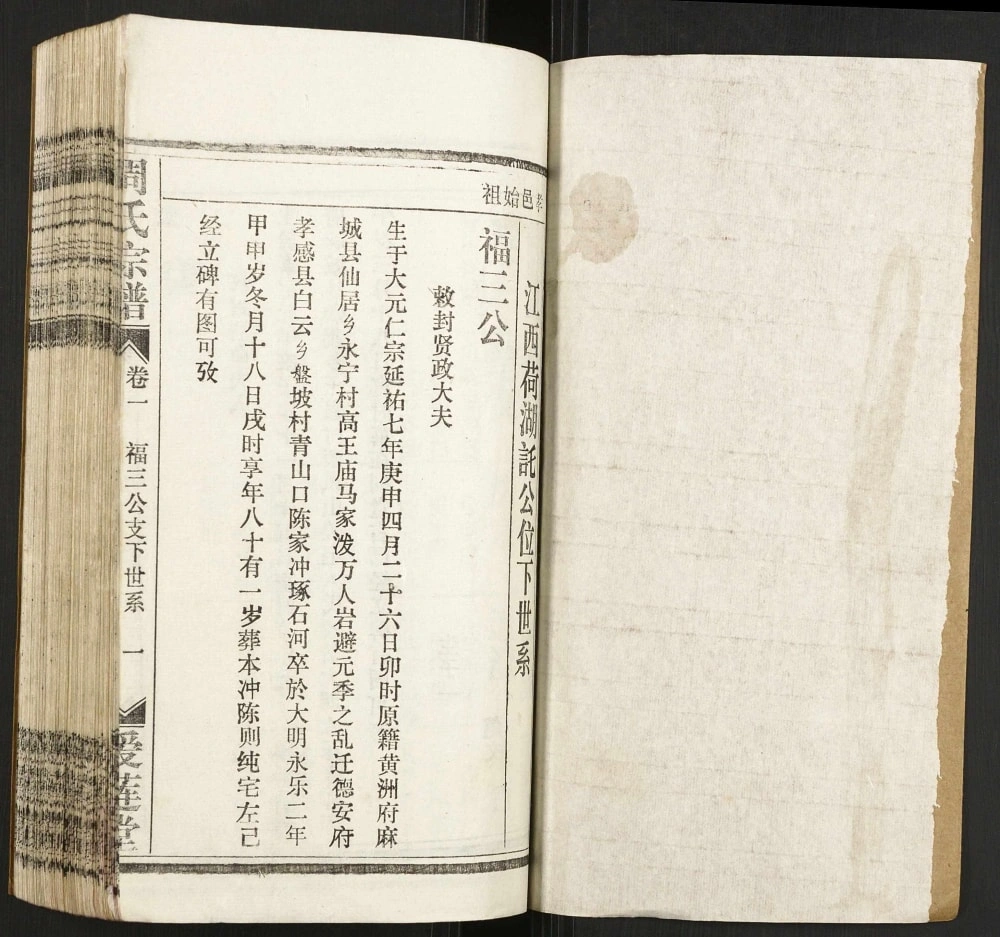 孝邑始祖
江西荷湖託公位下世系
福三公
敕封贤政大夫
生于大元仁宗延祐七年庚申四月二十六日卯时原籍黄洲府麻
城县仙居乡永宁村高王庙马家泼万人岩避元季之乱迁德安府
孝感县白云乡盤坡村青山口陈家冲琢石河卒於大明永乐二年
甲申岁冬月十八日戌时享年八十有一岁葬本冲陈则纯宅左己
经立碑有图可攷
周氏宗譜
卷一
福三公支下世系
一
爱莲堂